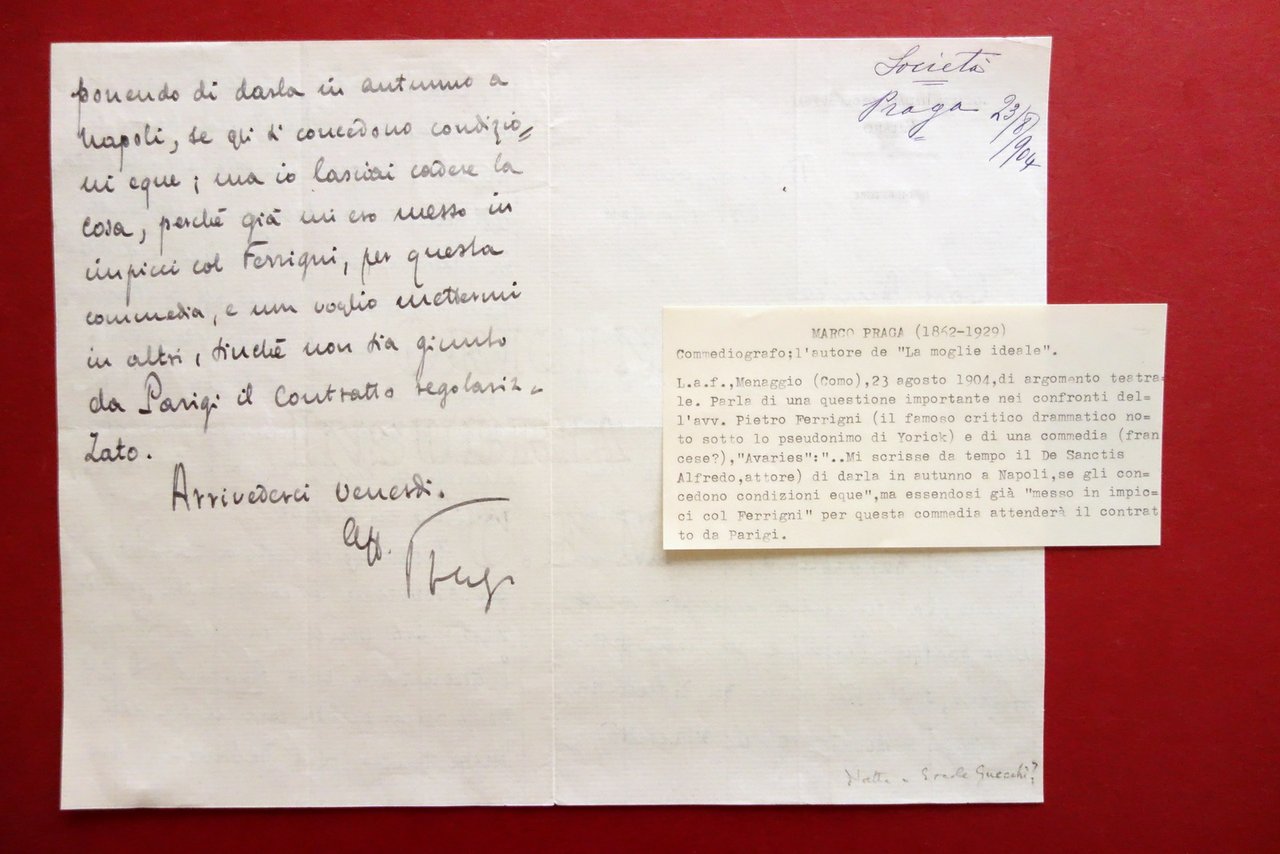 ponendo di darla in autunno a
Napoli, se gli si concedono condizio=
ni eque; ma io lasciai cadere la
cosa, perchè già mi ero messo in
impicci col Ferrigni, per questa
commedia, e non voglio mettermi
in altri, finchè non sia giunto
da Parigi il Contratto regolariz=
zato.
Arrivederci venerdì.
Aff.
Praga
Società
Praga 23/8/904
MARCO PRAGA (1862-1929)
Commediografo;l'autore de "La moglie ideale".
L.a.f.,Menaggio (Como),23 agosto 1904,di argomento teatra=
le. Parla di una questione importante nei confronti del=
l'avv. Pietro Ferrigni (il famoso critico drammatico no=
to sotto lo pseudonimo di Yorick) e di una commedia (fran
cese?),"Avaries":"..Mi scrisse da tempo il De Sanctis
Alfredo,attore) di darla in autunno a Napoli,se gli con=
cedono condizioni eque",ma essendosi già "messo in impic=
ci col Ferrigni" per questa commedia attenderà il contrat
to da Parigi.